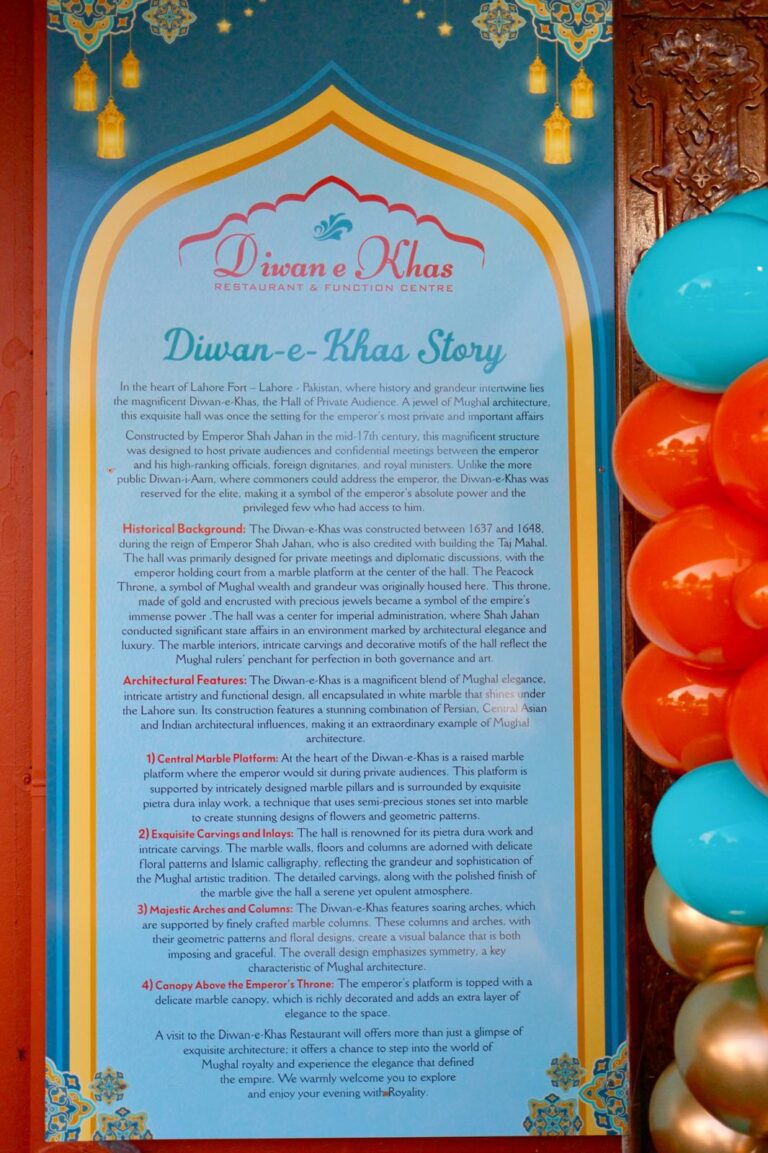 Diwan e Khas
RESTAURANT & FUNCTION CENTRE
Diwan-e-Khas Story
In the heart of Lahore Fort – Lahore - Pakistan, where history and grandeur intertwine lies
the magnificent Diwan-e-Khas, the Hall of Private Audience. A jewel of Mughal architecture,
this exquisite hall was once the setting for the emperor's most private and important affairs
Constructed by Emperor Shah Jahan in the mid-17th century, this magnificent structure
was designed to host private audiences and confidential meetings between the emperor
and his high-ranking officials, foreign dignitaries, and royal ministers. Unlike the more
public Diwan-i-Aam, where commoners could address the emperor, the Diwan-e-Khas was
reserved for the elite, making it a symbol of the emperor's absolute power and the
privileged few who had access to him.
Historical Background: The Diwan-e-Khas was constructed between 1637 and 1648,
during the reign of Emperor Shah Jahan, who is also credited with building the Taj Mahal.
The hall was primarily designed for private meetings and diplomatic discussions, with the
emperor holding court from a marble platform at the center of the hall. The Peacock
Throne, a symbol of Mughal wealth and grandeur was originally housed here. This throne,
made of gold and encrusted with precious jewels became a symbol of the empire's
immense power .The hall was a center for imperial administration, where Shah Jahan
conducted significant state affairs in an environment marked by architectural elegance and
luxury. The marble interiors, intricate carvings and decorative motifs of the hall reflect the
Mughal rulers' penchant for perfection in both governance and art.
Architectural Features: The Diwan-e-Khas is a magnificent blend of Mughal elegance,
intricate artistry and functional design, all encapsulated in white marble that shines under
the Lahore sun. Its construction features a stunning combination of Persian, Central Asian
and Indian architectural influences, making it an extraordinary example of Mughal
architecture.
1) Central Marble Platform: At the heart of the Diwan-e-Khas is a raised marble
platform where the emperor would sit during private audiences. This platform is
supported by intricately designed marble pillars and is surrounded by exquisite
pietra dura inlay work, a technique that uses semi-precious stones set into marble
to create stunning designs of flowers and geometric patterns.
2) Exquisite Carvings and Inlays: The hall is renowned for its pietra dura work and
intricate carvings. The marble walls, floors and columns are adorned with delicate
floral patterns and Islamic calligraphy, reflecting the grandeur and sophistication of
the Mughal artistic tradition. The detailed carvings, along with the polished finish of
the marble give the hall a serene yet opulent atmosphere.
3) Majestic Arches and Columns: The Diwan-e-Khas features soaring arches, which
are supported by finely crafted marble columns. These columns and arches, with
their geometric patterns and floral designs, create a visual balance that is both
imposing and graceful. The overall design emphasizes symmetry, a key
characteristic of Mughal architecture.
4) Canopy Above the Emperor's Throne: The emperor's platform is topped with a
delicate marble canopy, which is richly decorated and adds an extra layer of
elegance to the space.
A visit to the Diwan-e-Khas Restaurant will offers more than just a glimpse of
exquisite architecture; it offers a chance to step into the world of
Mughal royalty and experience the elegance that defined
the empire. We warmly welcome you to explore
and enjoy your evening with Royality.